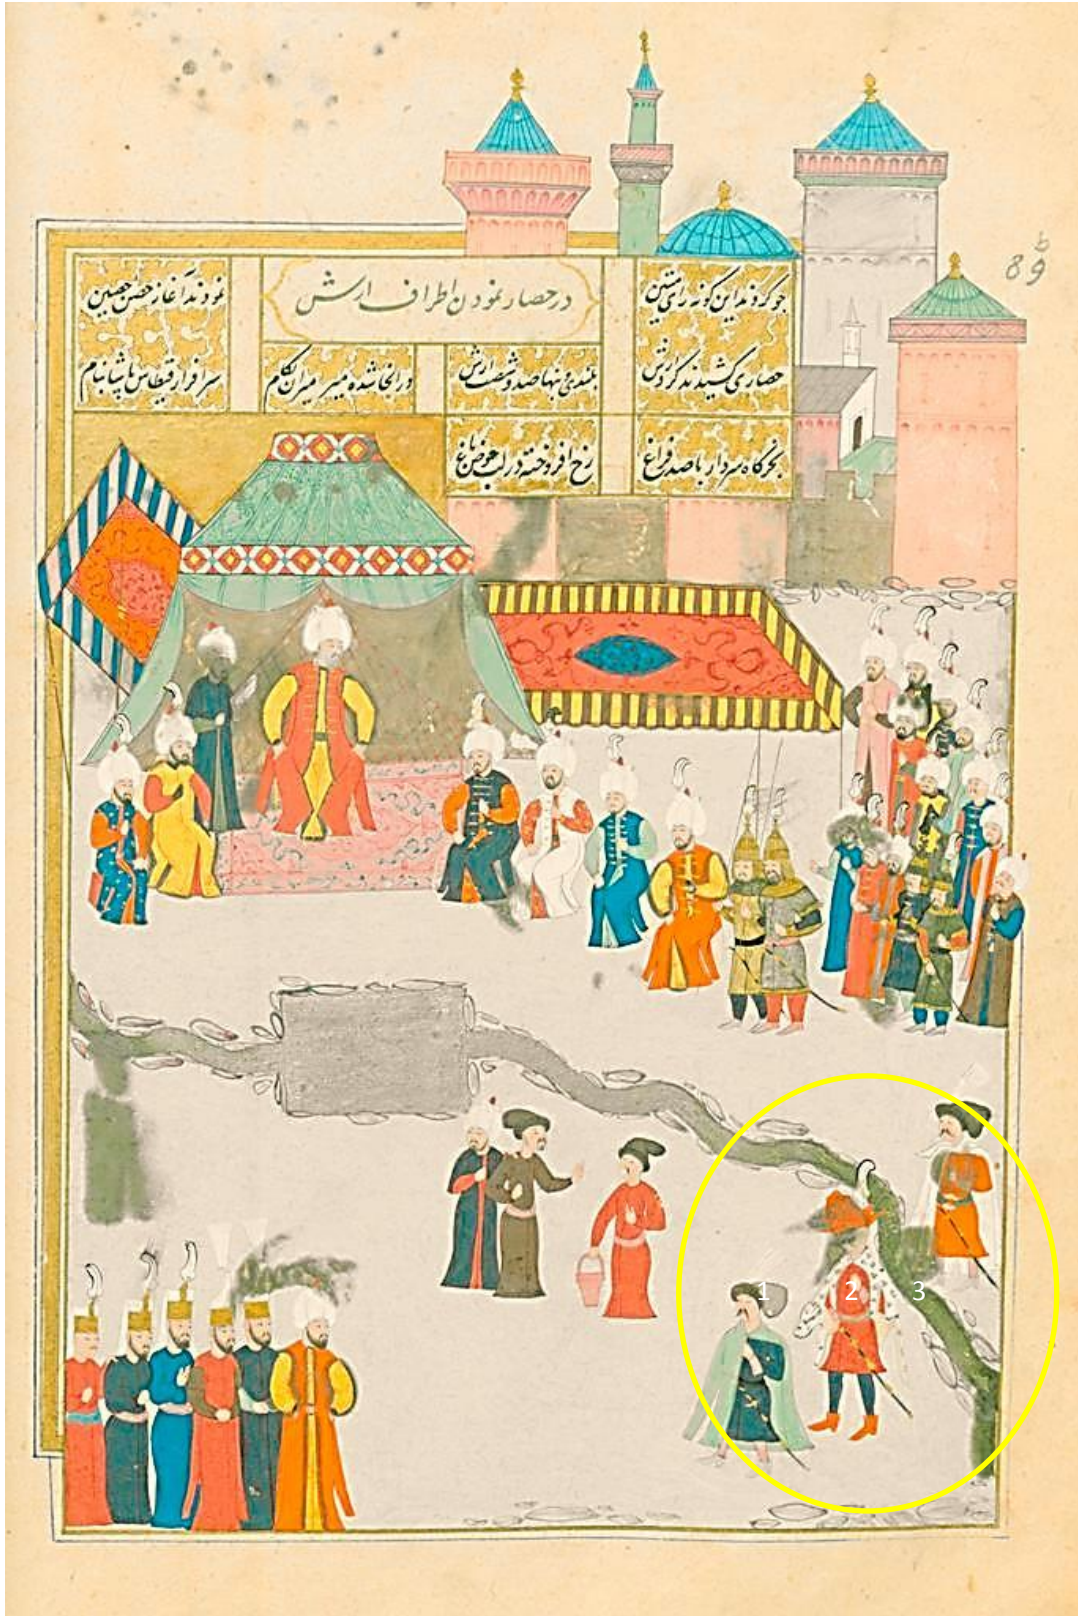 جو کردند این کونه رای متین
در حصار نمودن اطراف ارش
نمودند آغاز حصن حصین
حصاری کشیدند کرد ارش
بلندی و پنهاصد و شصت ارش
در انجا شده میر میران بکام
سرافراز قیطاس پاشا بنام
بخرکاه سردار با صد فراغ
رخ افروخته در لب حوض باغ
1 2 3